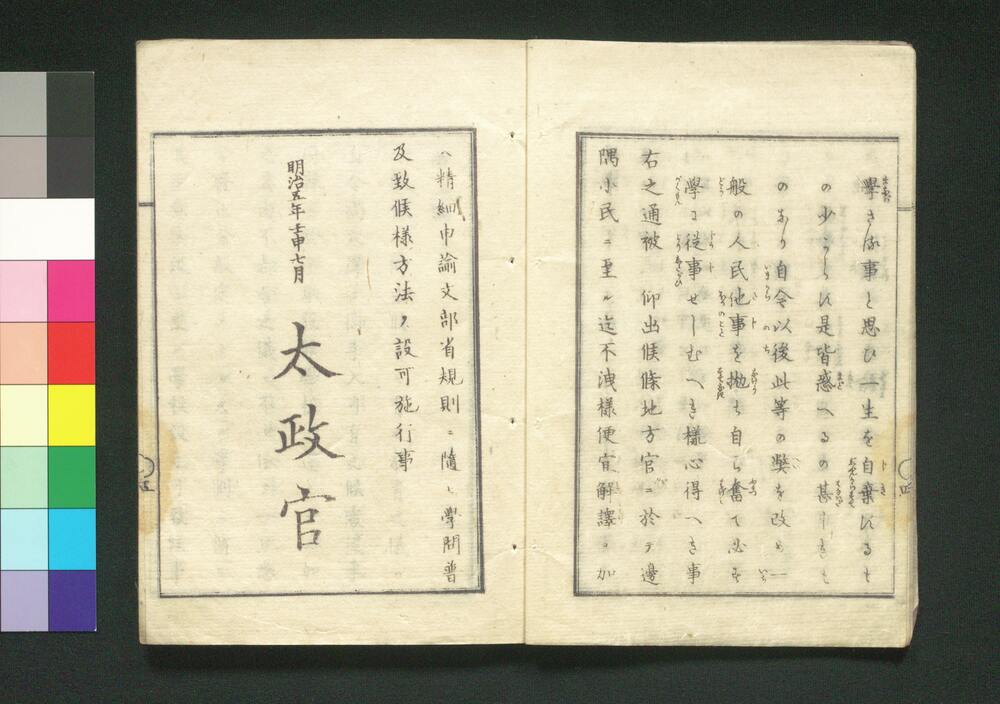 學さる事と思ひ一生を自棄するも
の少からす是皆惑へるの甚しきも
のなり自今以後此等の弊を改め一
般の人民他事を抛ち自ら奮て必す
學に從事せしむへき樣心得へき事
右之通被 仰出候條地方官ニ於テ邊
隅小民ニ至ル迄不洩樣便宜解譯ヲ加
ヘ精細申諭文部省規則ニ隨ヒ學問普
及致候樣方法ヲ設可施行事
明治五年壬申七月
太政官